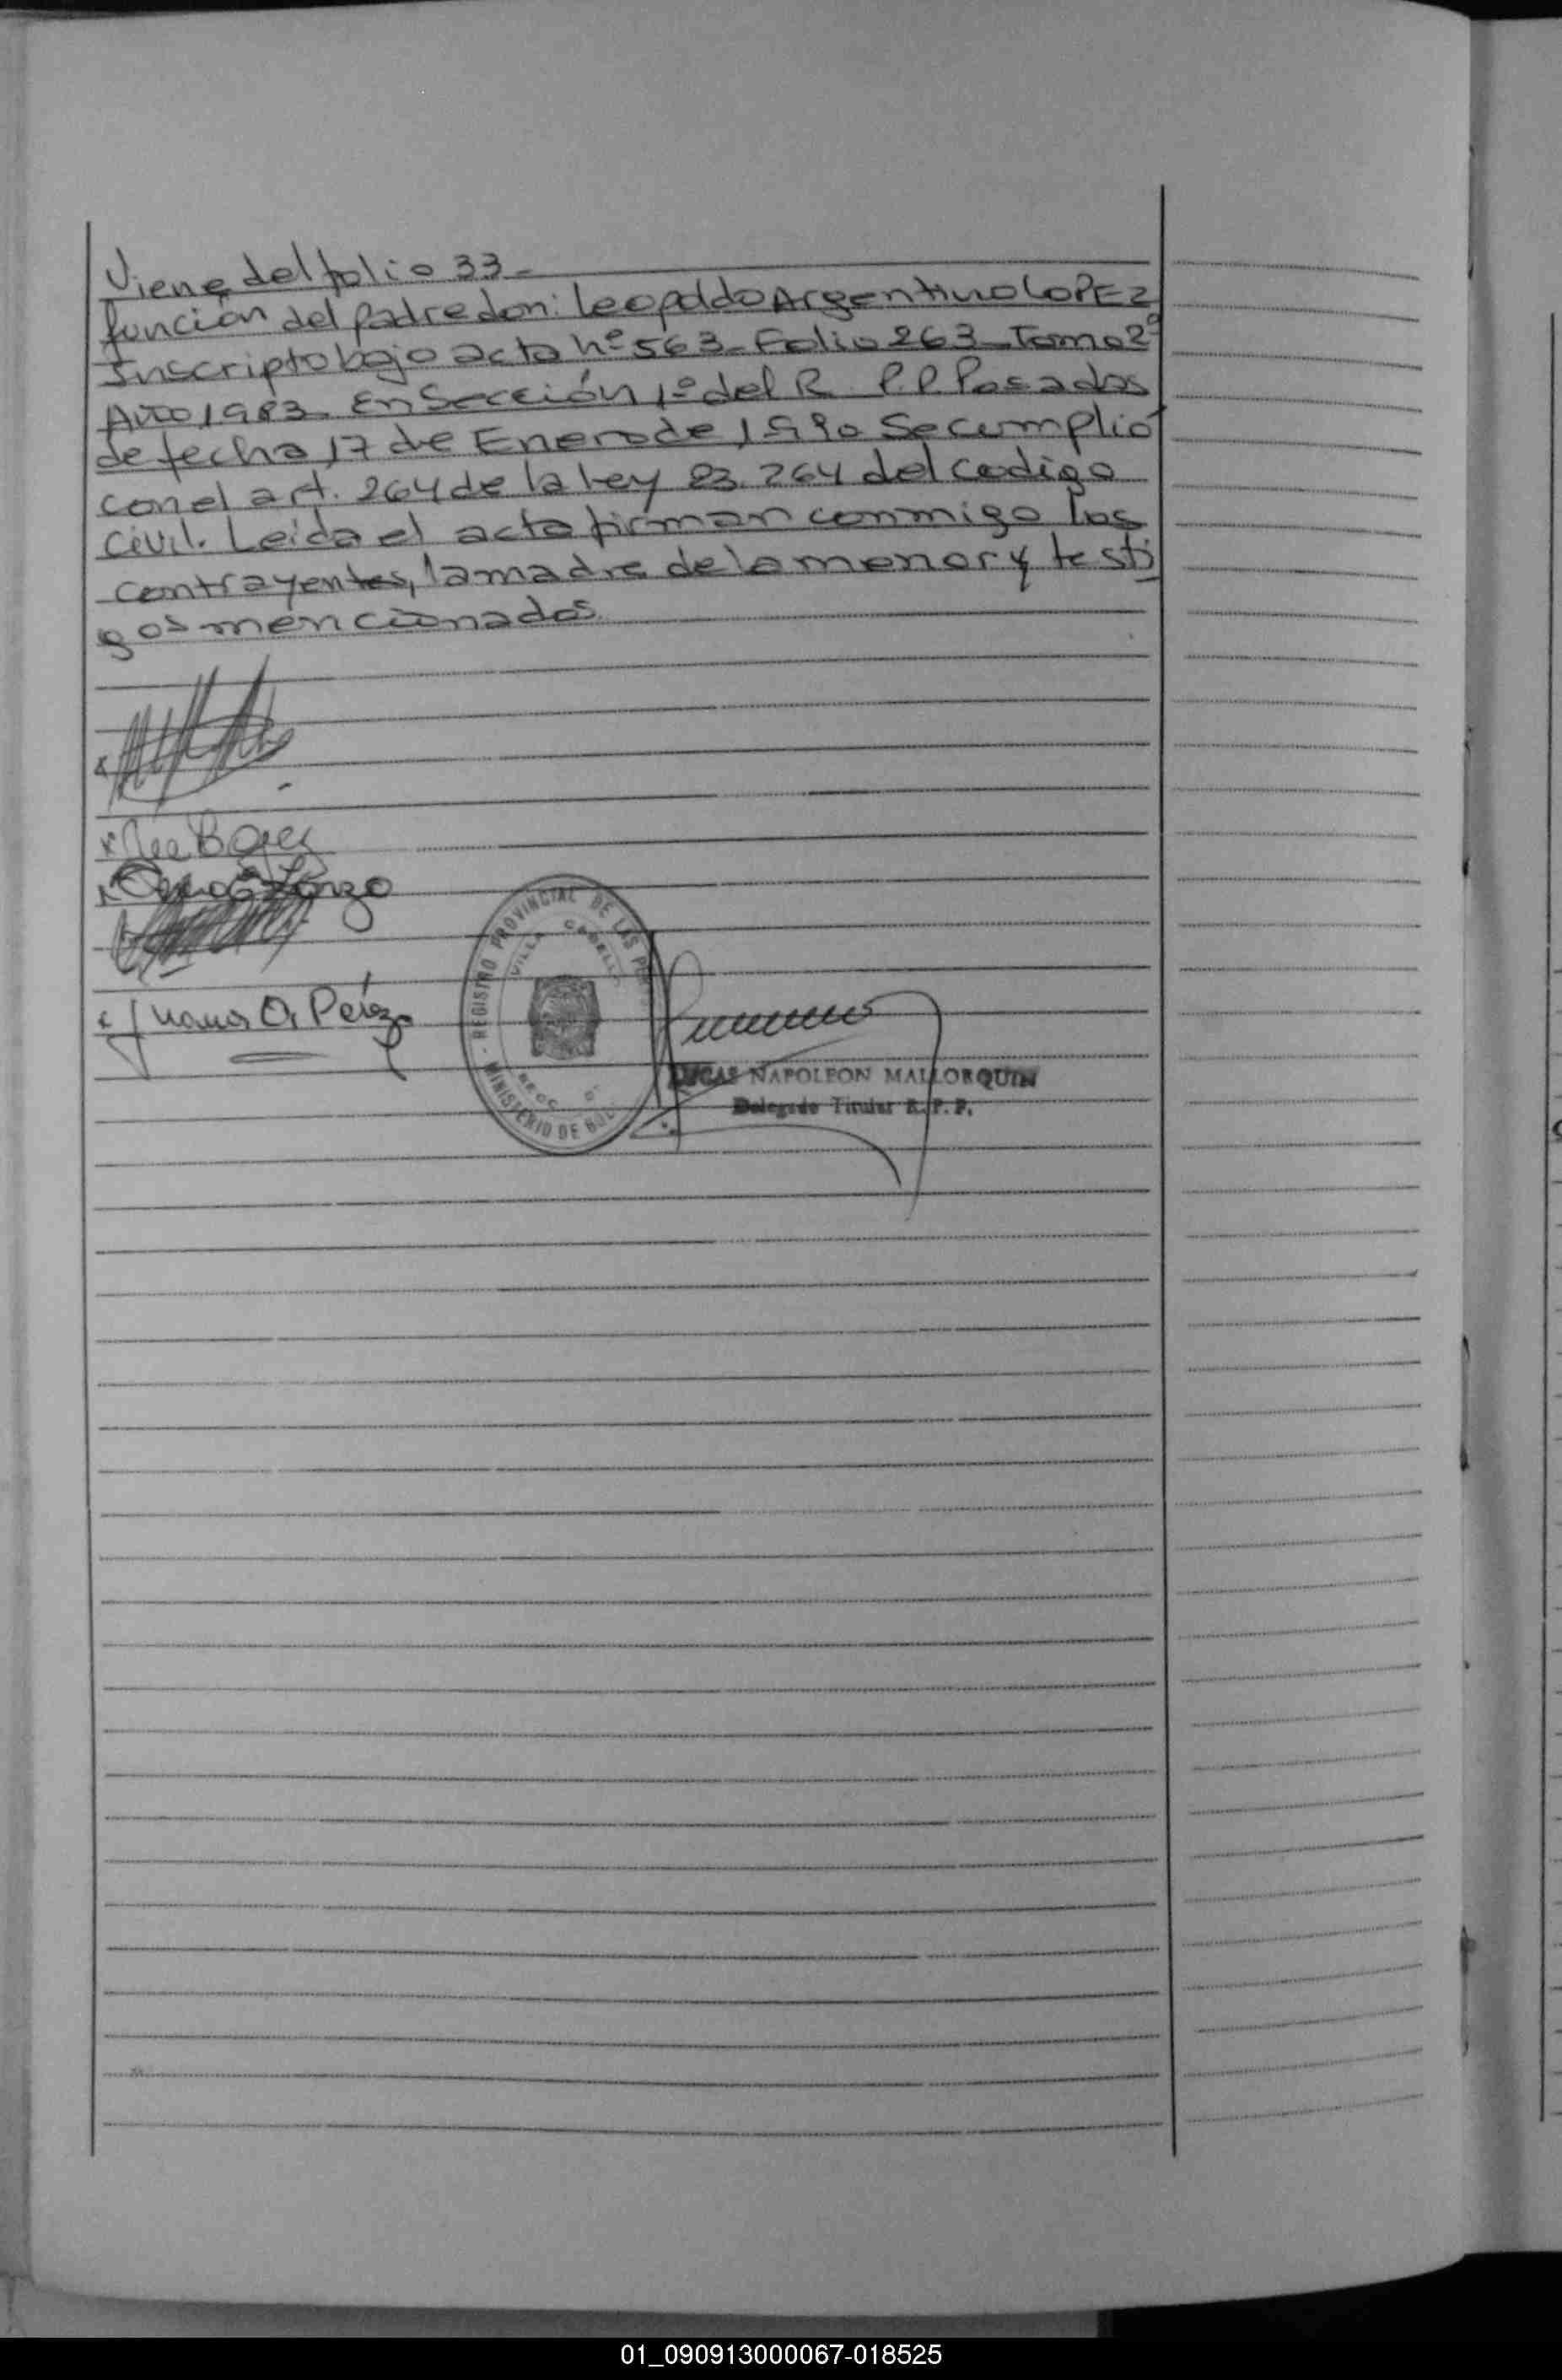 Viene del folio 33-
función del Padre don: Leopoldo Argentino LOPEZ
Inscripto bajo acta nº 563- Folio 263- Tomo 2º
Año 1983- En Sección 1º del R. P.P. Posadas
de fecha 17 de Enero de 1990 Se cumplió
con el art. 264 de la Ley 23.264 del codigo
Civil. Leída el acta firman conmigo los
contrayentes, la madre de la menor y testi
gos mencionados.
Juana O. Perez
REGISTRO PROVINCIAL DE LAS
VILLA CABELLO
MINISTERIO DE
LUCAS NAPOLEON MALLORQUIN
Delegado Titular R. P. P.
01_090913000067-018525